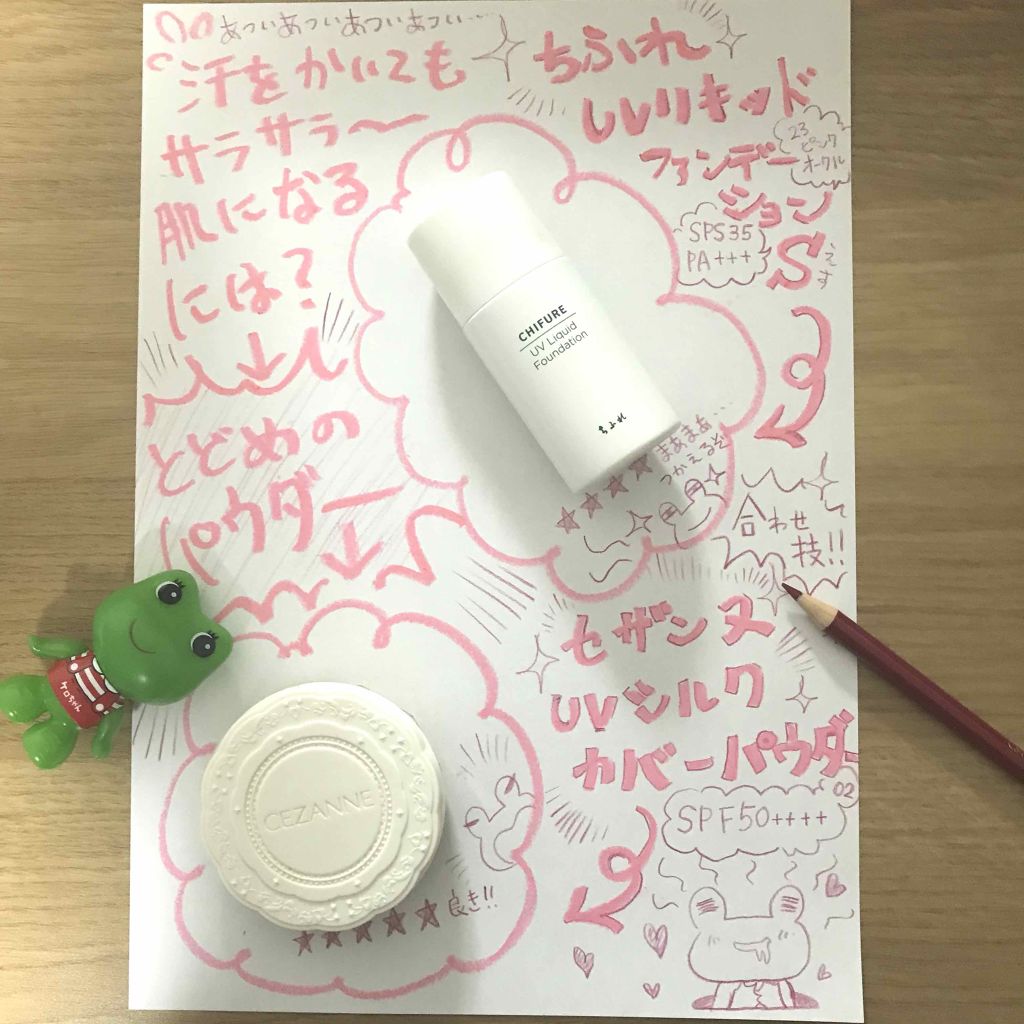 あついあついあついあつい…
汗をかいても
サラサラ〜
肌になる
には?
とどめの
パウダー
ちふれ
UVリキッド
ファンデー
ション
S
えす
23
ピンク
オークル
SPS35
PA+++
CHIFURE
UV Liquid
Foundation
ちふれ
★★★★
まあまあ…
つかえるぞ
合わせて
技!!
セザンヌ
UVシルク
カバーパウダー
02
SPF50++++
CEZANNE
★★★★★良き!!
ケロちゃん